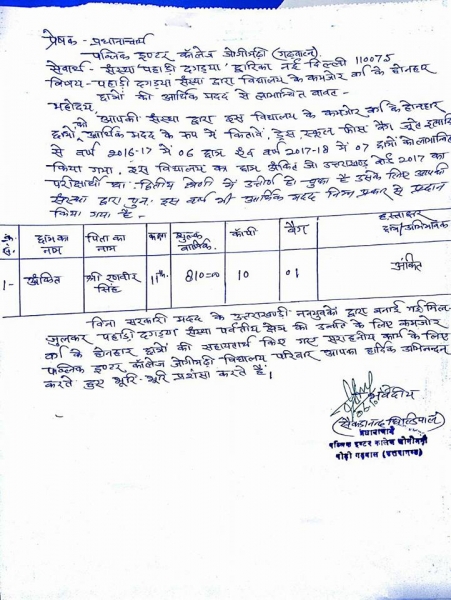 प्रेषक - प्रधानाचार्य
पब्लिक इण्टर कॉलेज जोगीमढ़ी (गढ़वाल)
सेवार्थ - संस्था पहाड़ी दगड़्या द्वारिका नई दिल्ली 110075
विषय - पहाड़ी दगड़्या संस्था द्वारा विद्यालय के कमजोर वर्ग के होनहार
छात्रों की आर्थिक मदद से लाभान्वित बावत -
महोदय,
आपकी संस्था द्वारा इस विद्यालय के कमजोर वर्ग के होनहार
छात्रों को आर्थिक मदद के रूप में किताबें, ड्रेस, स्कूल फीस, बैग, जूते इत्यादि
से वर्ष 2016-17 में 06 छात्र एवं वर्ष 2017-18 में 07 छात्रों को लाभान्वित
किया गया, इस विद्यालय का छात्र अंकित जो उत्तराखण्ड बोर्ड 2017 का
परीक्षार्थी था द्वितीय श्रेणी में उत्तीर्ण हो चुका है उसके लिए आपकी
संस्था द्वारा पुनः इस वर्ष भी आर्थिक मदद निम्न प्रकार से प्रदान
किया गया है -
क्र. सं. छात्र का नाम पिता का नाम कक्षा शुल्क वार्षिक कॉपी बैग हस्ताक्षर छात्र/अभिभावक
1- अंकित श्री रणवीर सिंह 11th 810=00 10 01 अंकित
बिना सरकारी मदद के उत्तराखण्डी नवयुवकों द्वारा बनाई गई मिल-
जुलकर पहाड़ी दगड़्या संस्था पर्वतीय क्षेत्र की उन्नति के लिए कमजोर
वर्ग के होनहार छात्रों की सहायतार्थ किए गए सराहनीय कार्य के लिए
पब्लिक इण्टर कॉलेज जोगीमढ़ी विद्यालय परिवार आपका हार्दिक अभिनन्दन
करते हुए भूरि-भूरि प्रशंसा करते हैं।
भवदीय
प्रधानाचार्य
पब्लिक इण्टर कालेज जोगीमढ़ी
पौड़ी गढ़वाल (उत्तराखण्ड)